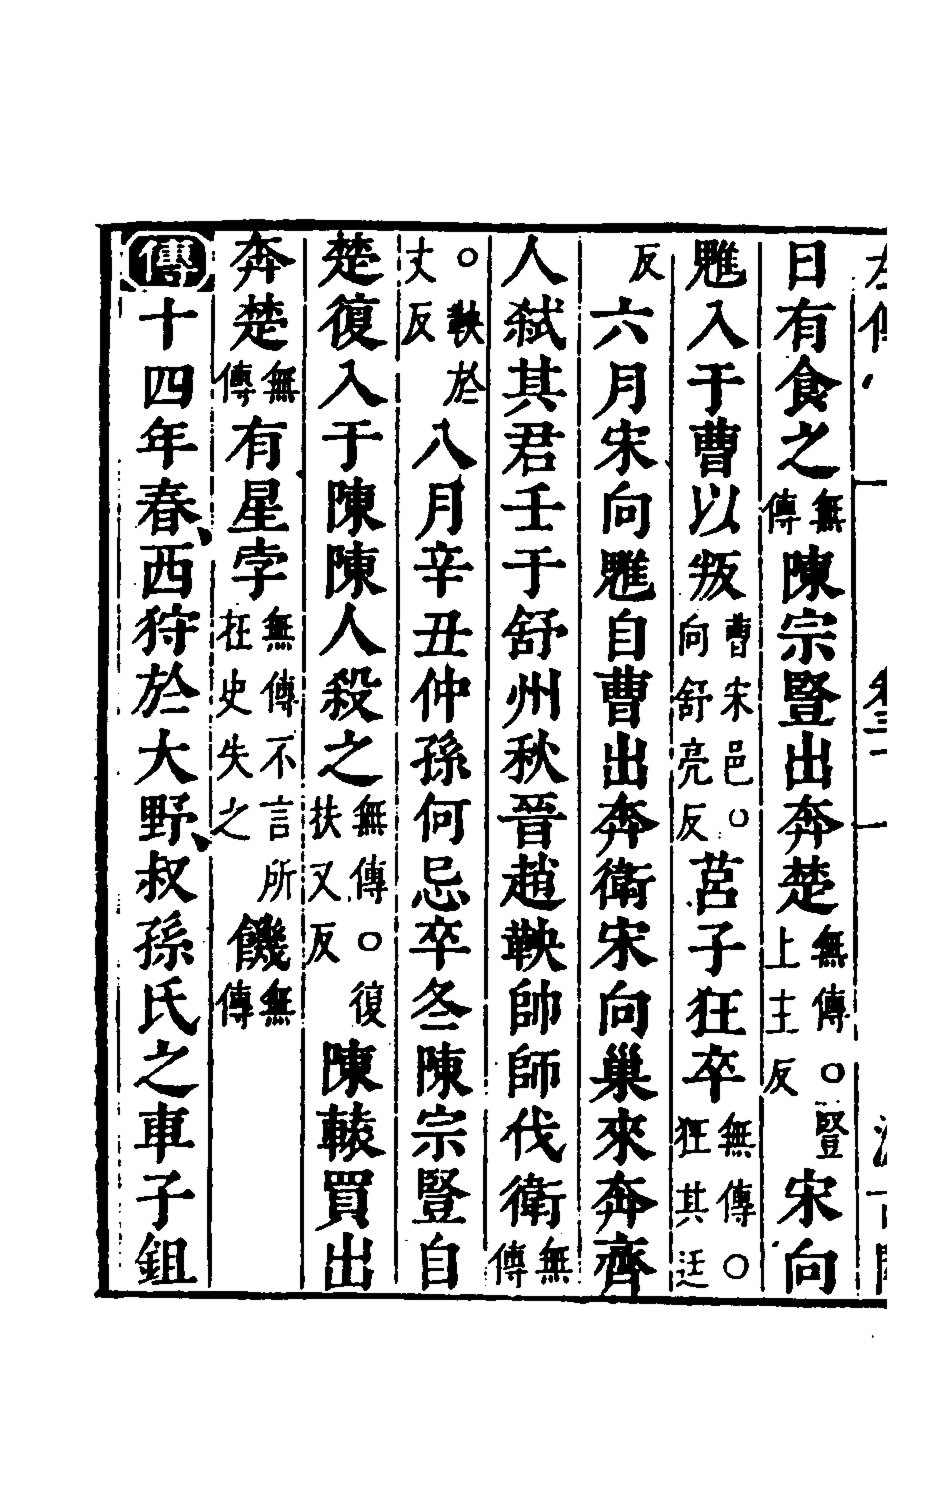 日有食之無傳陳宗豎出奔楚無傳○豎上主反宋向
魋入于曹以叛曹宋邑○向舒亮反莒子狂卒無傳○狂其迋
反六月宋向魋自曹出奔衛宋向巢來奔齊
人弑其君壬于舒州秋晉趙鞅帥師伐衛無傳
○鞅於丈反八月辛丑仲孫何忌卒冬陳宗豎自
楚復入于陳陳人殺之無傳○復扶又反陳轅買出
奔楚無傳有星孛無傳不言所在史失之饑無傳
傳十四年春、西狩於大野、叔孫氏之車子鉏